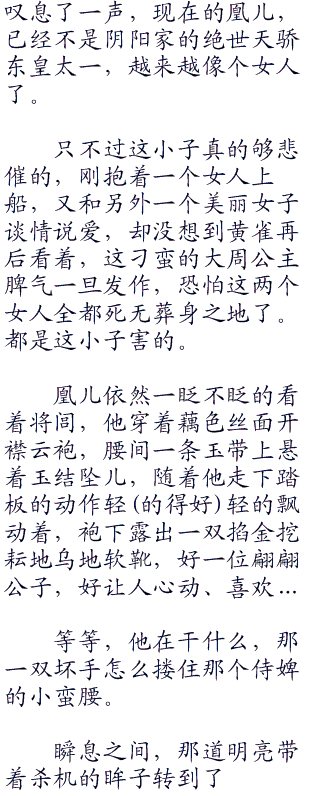 叹息了一声，现在的凰儿，
已经不是阴阳家的绝世天骄
东皇太一，越来越像个女人
了。
只不过这小子真的够悲
催的，刚抱着一个女人上
船，又和另外一个美丽女子
谈情说爱，却没想到黄雀再
后看着，这刁蛮的大周公主
脾气一旦发作，恐怕这两个
女人全都死无葬身之地了。
都是这小子害的。
凰儿依然一眨不眨的看
着将闾，他穿着藕色丝面开
襟云袍，腰间一条玉带上悬
着玉结坠儿，随着他走下踏
板的动作轻(的得好)轻的飘
动着，袍下露出一双掐金挖
耘地乌地软靴，好一位翩翩
公子，好让人心动、喜欢...
等等，他在干什么，那
一双坏手怎么搂住那个侍婢
的小蛮腰。
瞬息之间，那道明亮带
着杀机的眸子转到了